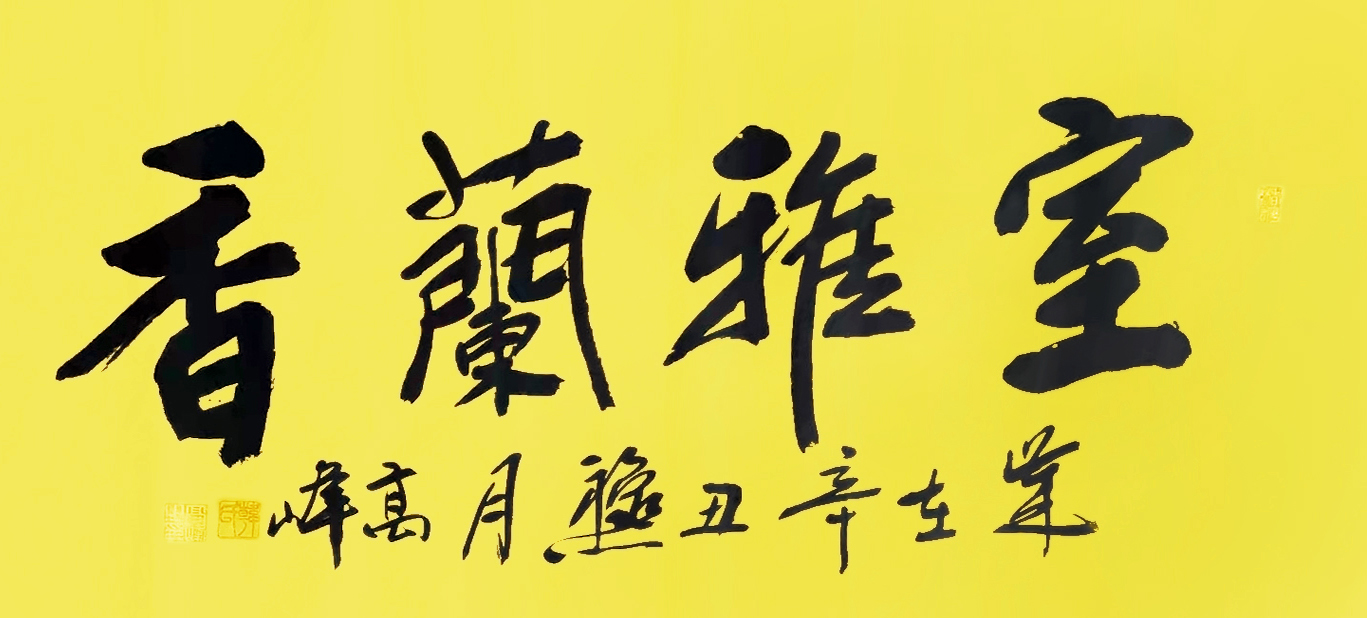 室雅蘭香
歲在辛丑穐月高峰